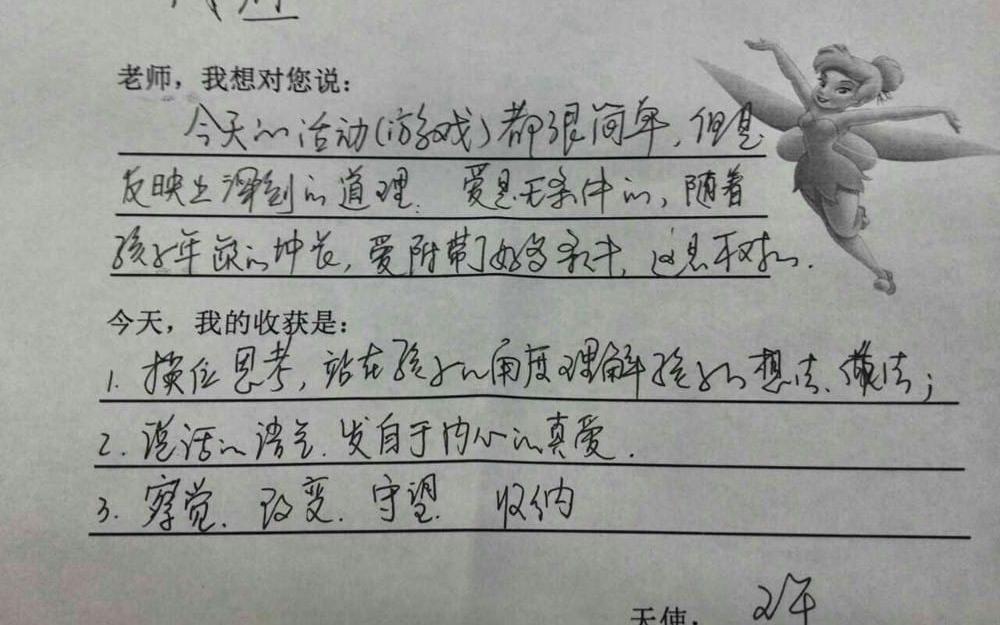 老师，我想对您说：
今天的活动(游戏)都很简单，但是
反映出深刻的道理。爱是无条件的，随着
孩子年龄的增长，爱附带了好多条件，这是不对的.
今天，我的收获是：
1. 换位思考，站在孩子的角度理解孩子的想法、做法；
2. 说话的语气、发自于内心的真爱.
3. 察觉、改变、守望、收纳
天使：